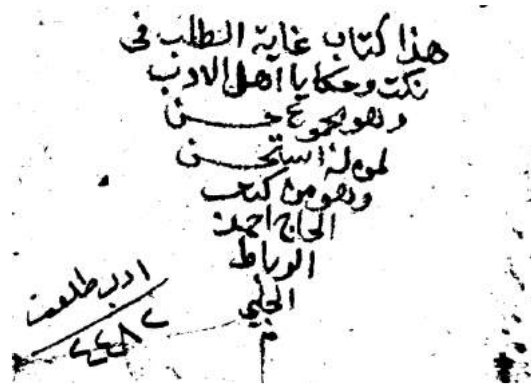 هذا كتاب غاية الطلب في
نكت وحكايا اهل الادب
وهو مجموع حسن
لمولفه استحسن
وهو من كتب
الحاج احمد
الرباط
الحلبي
ادب طلعت
٤٤٨٢